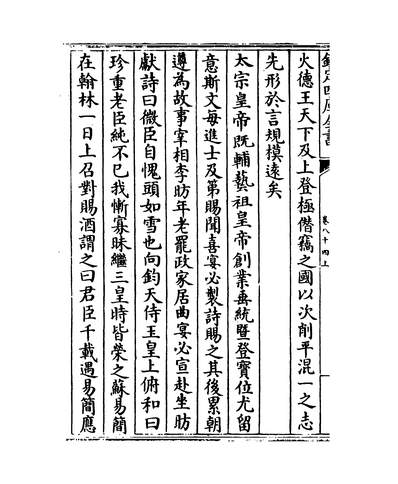 欽定四庫全書
卷八十四上
火德王天下及上登極僭竊之國以次削平混一之志
先形於言規模遠矣
太宗皇帝既輔藝祖皇帝創業垂統暨登寳位尤留
意斯文每進士及第賜聞喜宴必製詩賜之其後累朝
遵為故事宰相李昉年老罷政家居曲宴必宣赴坐昉
獻詩曰微臣自愧頭如雪也向鈞天侍玉皇上俯和曰
珍重老臣純不已我慚寡昧繼三皇時皆榮之蘇易簡
在翰林一日上召對賜酒謂之曰君臣千載遇易簡應